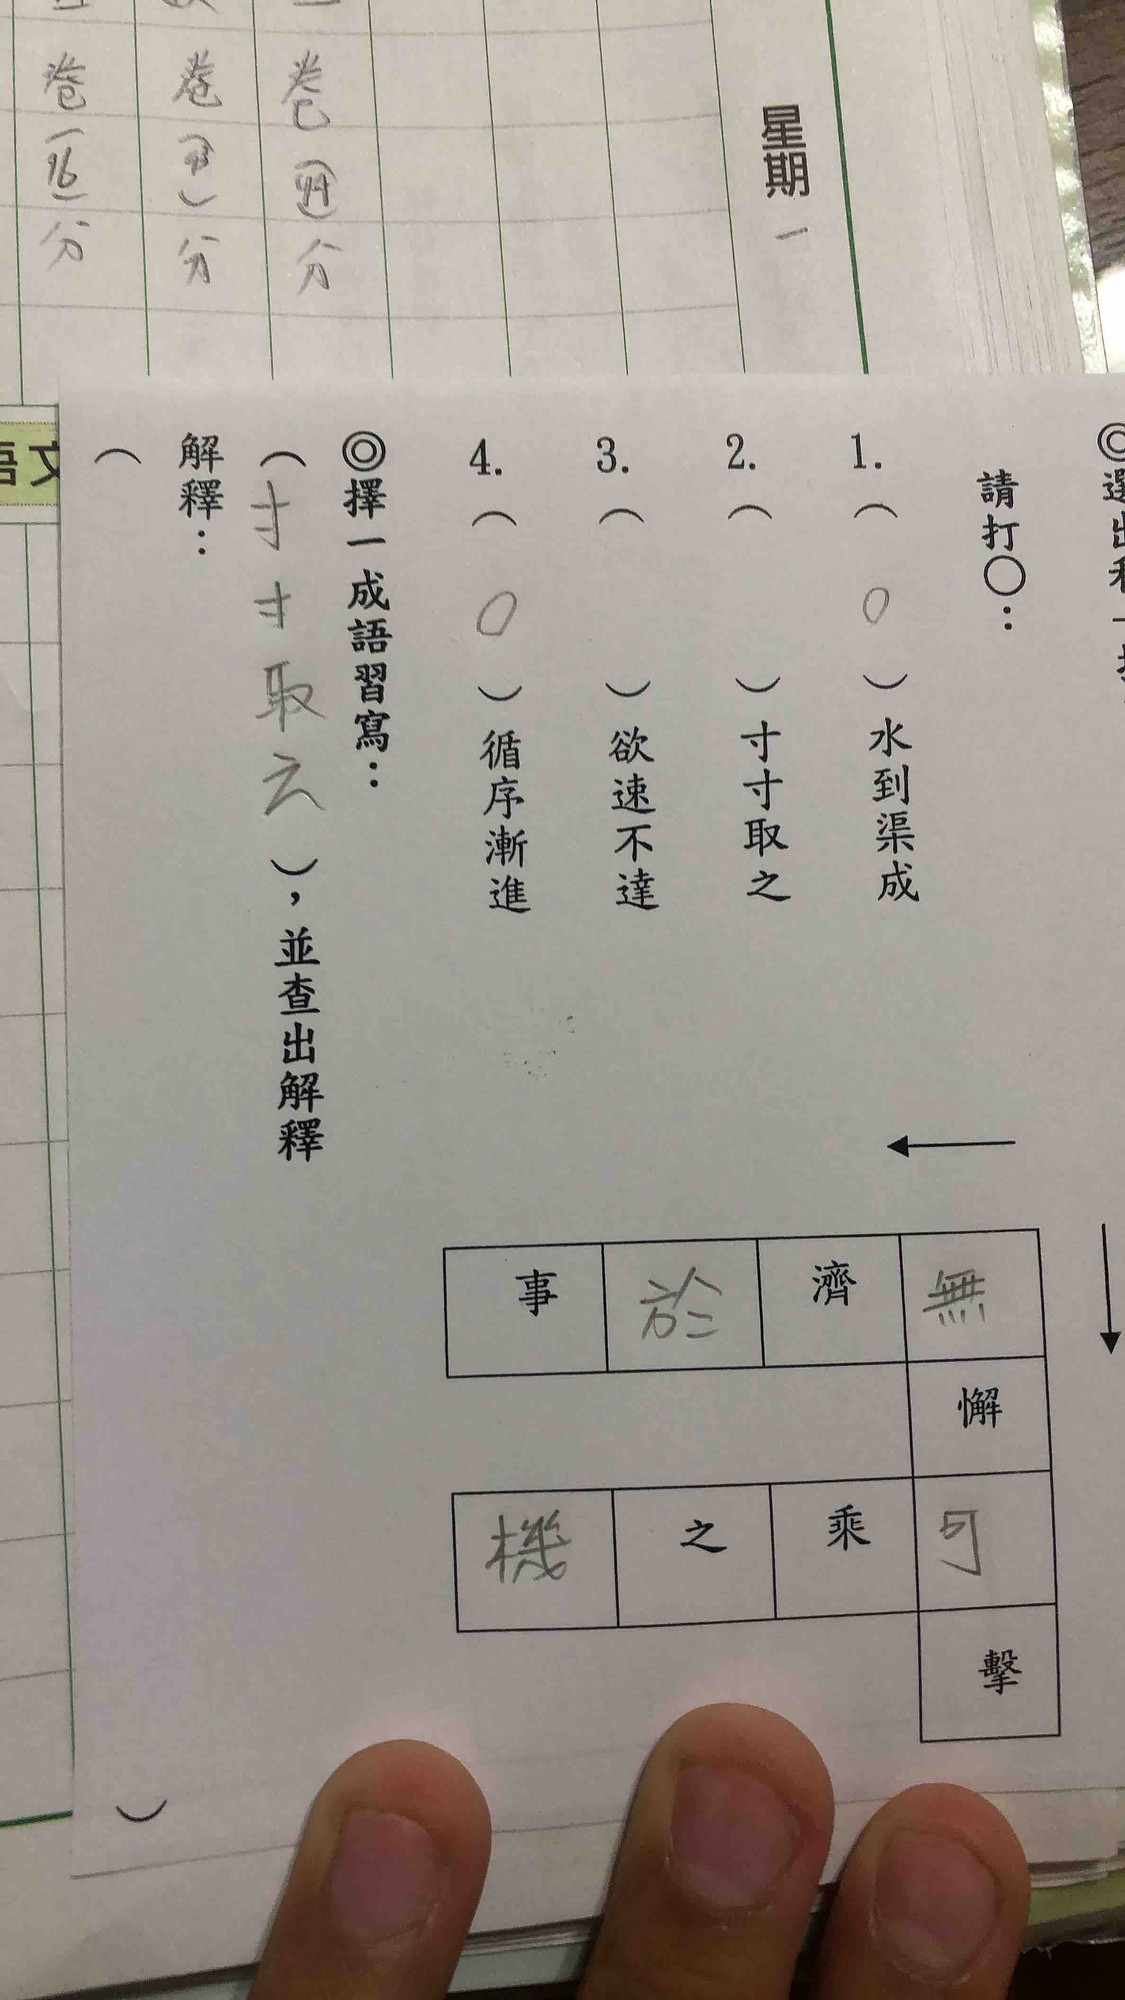 星期一
卷(94)分
卷(93)分
卷(96)分
語文
請打○：
1.(○)水到渠成
2.( )寸寸取之
3.( )欲速不達
4.(○)循序漸進
◎擇一成語習寫：
(寸寸取之)，並查出解釋
解釋：
( )
無懈可擊
濟於事
乘之機